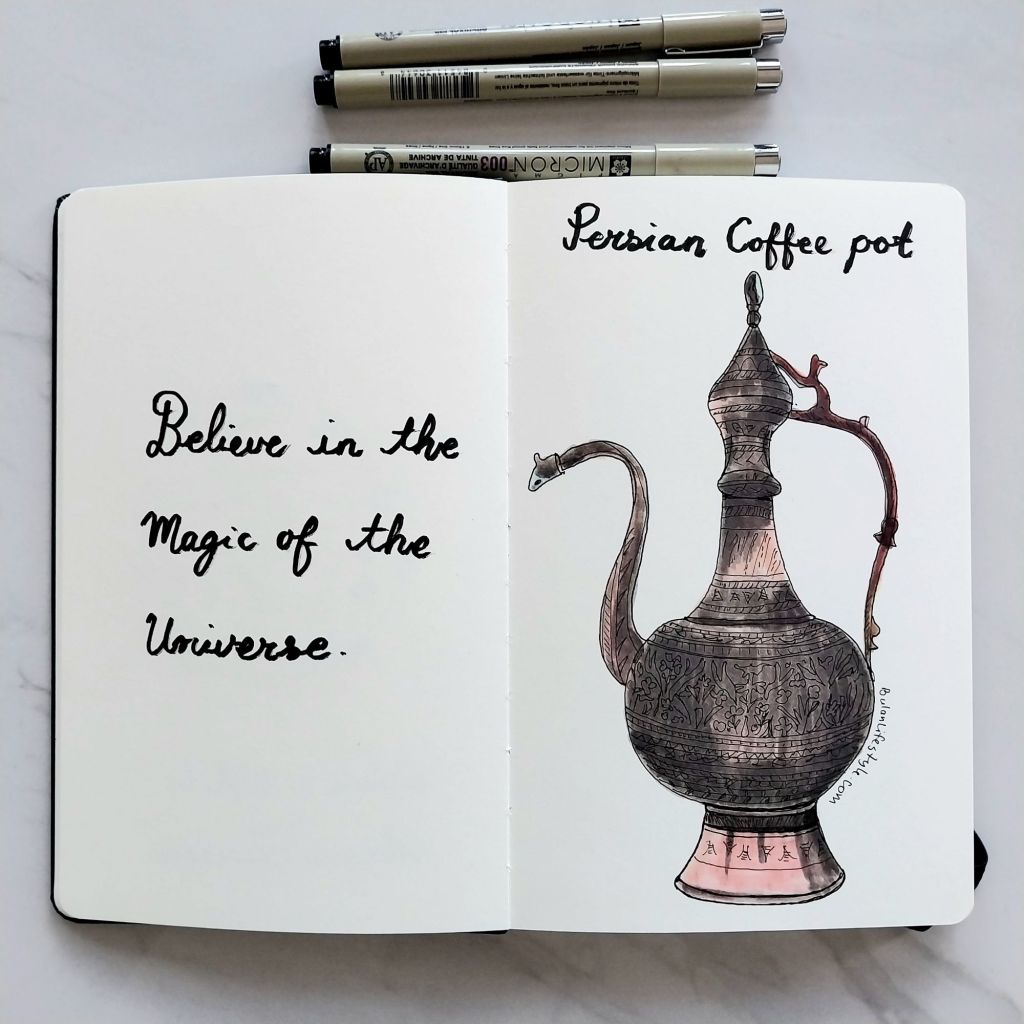 MICRON 003
QUALITÉ D'ARCHIVAGE
TINTA DE ARCHIVE
AP
Persian Coffee pot
Believe in the
Magic of the
Universe.
Bulanlifestyle.com